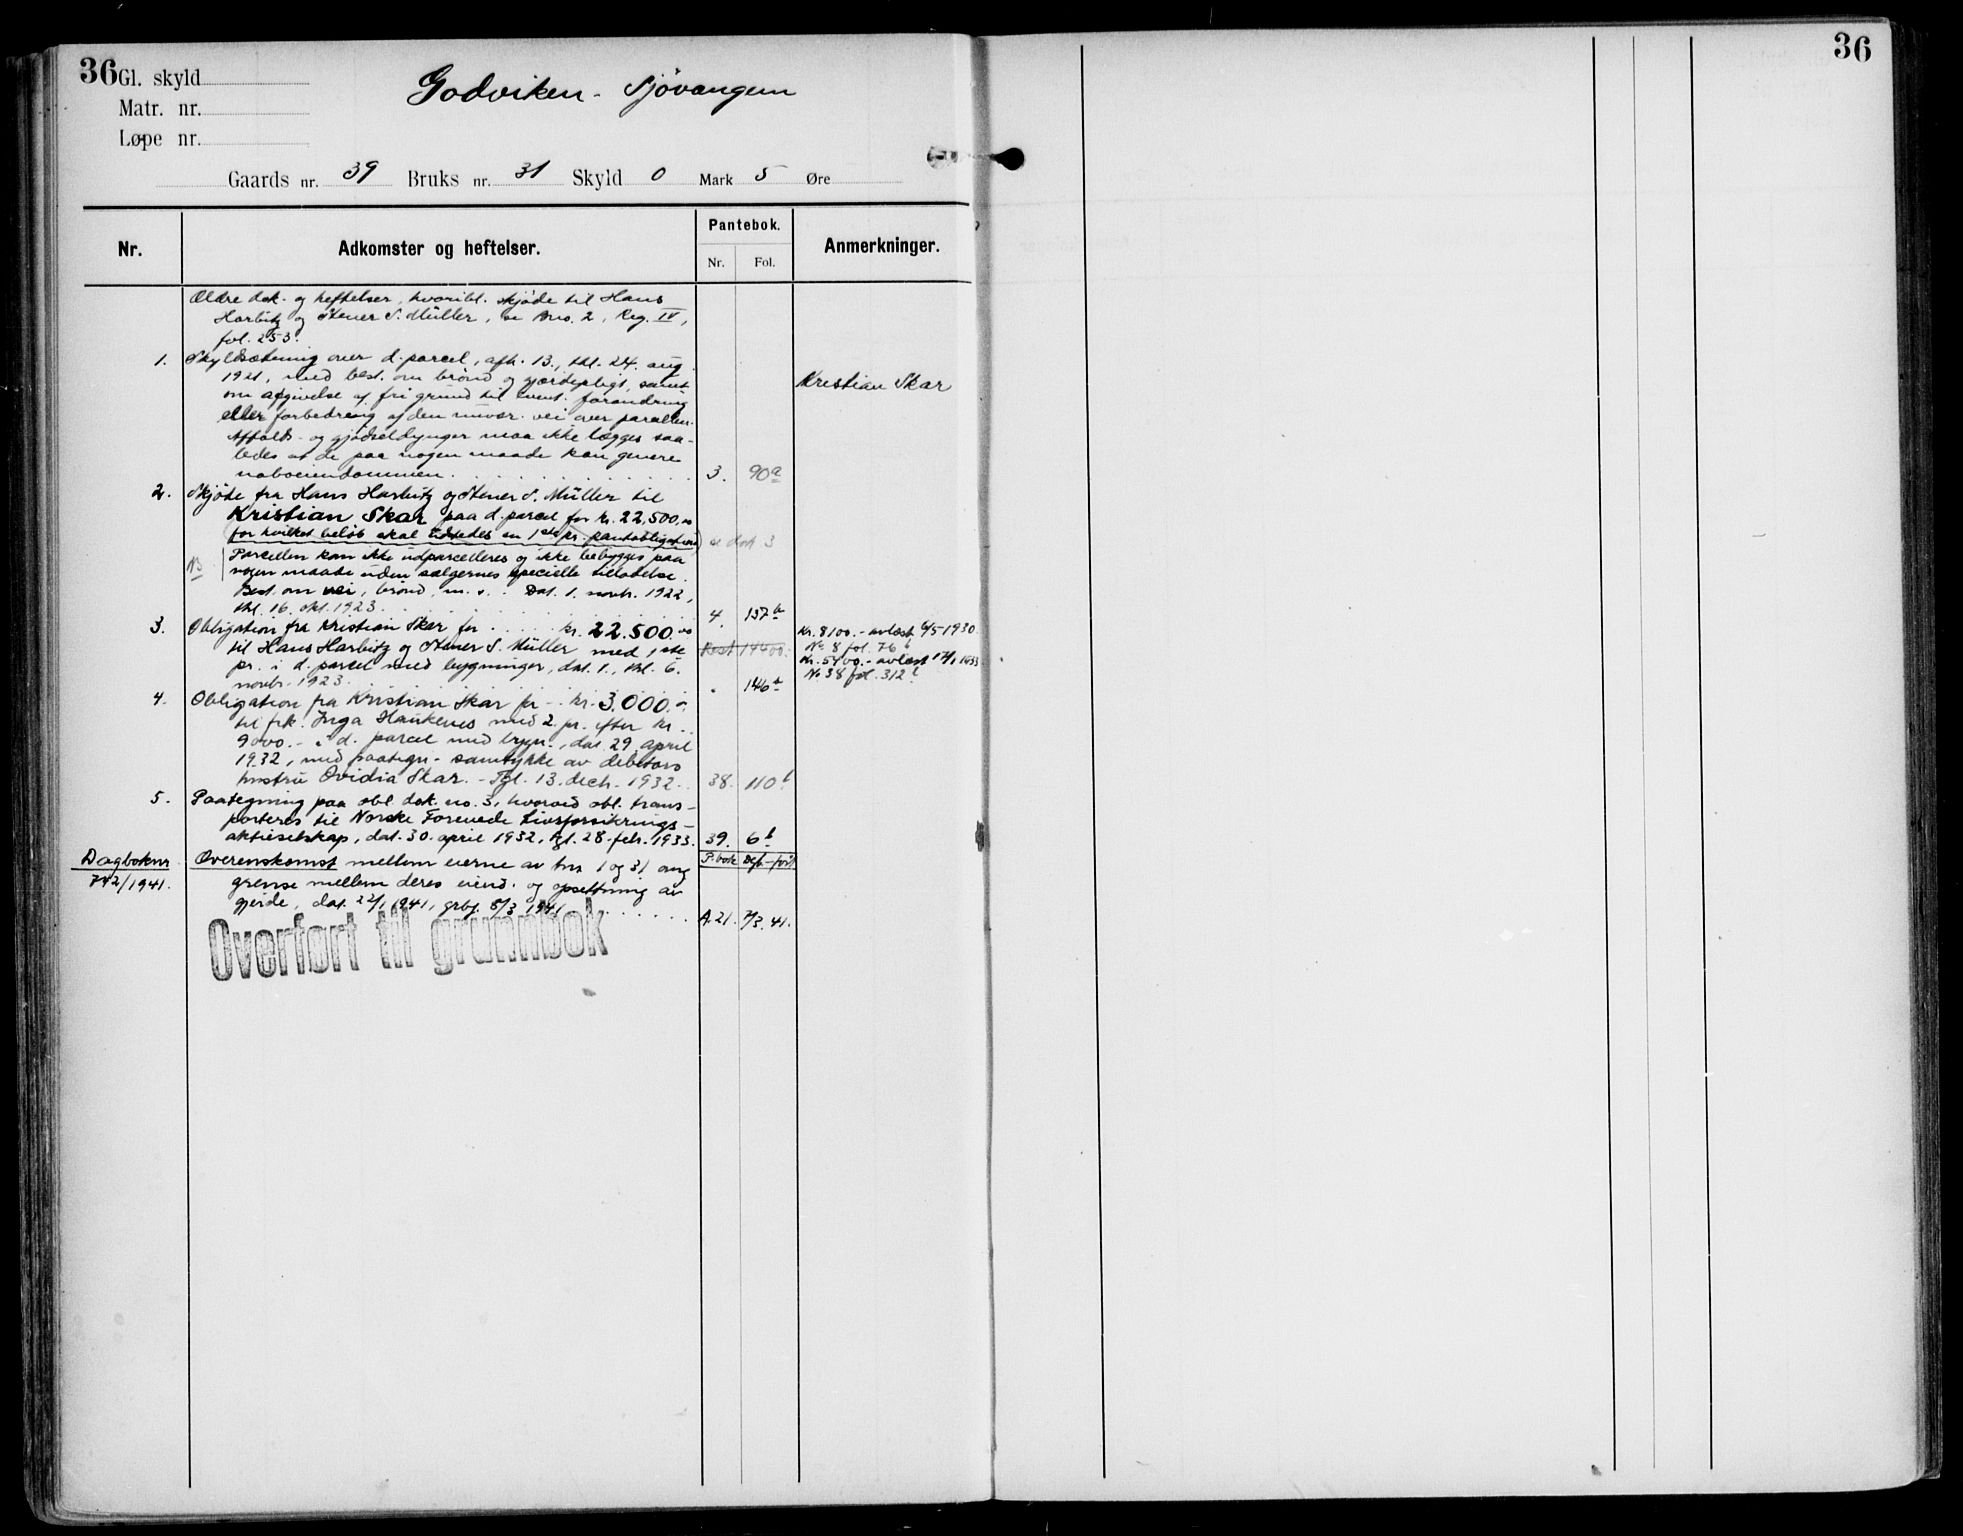 36 Gl. skyld
Matr. nr.
Løpe nr.
Godviken - Sjøvangen
36
Gaards nr. 39 Bruks nr. 31 Skyld 0 Mark 5 Øre
Nr.
Adkomster og heftelser.
Pantebok.
Nr. Fol.
Anmerkninger.
Ældre dok. og heftelser, hvoribl. skjøde til Hans
Harbitz og Stener S. Müller, se Bno. 2, Reg. IV,
fol. 253.
1. Skyldsætning over d. parcel, afh. 13., thl. 24. aug.
1921, med best. om brønd og gjærdepligt, samt
om afgivelse af fri grund til event. forandring
eller forbedring af den nuvær. vei over parcellen.
Affalds- og gjødseldynger maa ikke lægges saa-
ledes at de paa nogen maade kan genere
naboeiendommen. 3. 90a
Kristian Skar
2. Skjøde fra Hans Harbitz og Stener S. Müller til
Kristian Skar paa d. parcel for kr. 22,500,00
for hvilket beløb skal udstedes en 1ste pr. pantobligation) se dok 3
NB Parcellen kan ikke udparcelleres og ikke bebygges paa
nogen maade uden sælgernes specielle tilladelse.
Best. om vei, brønd, m. v. Dat. 1. novbr. 1922,
thl. 16. okt. 1923. 4. 137a
3. Obligation fra Kristian Skar for kr. 22.500.00
til Hans Harbitz og Stener S. Müller med 1ste
pr. i d. parcel med bygninger, dat. 1., thl. 6.
novbr. 1923. 146a
Rest 14400.-
Kr. 8100.- avlæst 6/5 1930
No 8 fol. 76b
Kr. 5400.- avlæst 17/1 1933
No 38 fol. 312b
4. Obligation fra Kristian Skar for kr. 3.000.-
til frk. Inga Haukenes med 2. pr. efter kr.
9000.- i d. parcel med bygn., dat. 29. april
1932, med paategn. samtykke av debitors
hustru Ovidia Skar. - Tgl. 13. decb. 1932. 38. 110b
5. Paategning paa obl. dok. no. 3, hvorved obl. trans-
porteres til Norske Forenede Livsforsikrings-
aktieselskap, dat. 30. april 1932, tgl. 28. febr. 1933. 39. 6b
Dagboknr
742/1941.
Overenskomst mellem eierne av bnr 1 og 31 ang
grense mellem deres eiend. og opsettning av
gjerde, dat. 22/1 1941, grbf. 8/3 1941
P.bok Dgb-ført
A.21. 7/3.41.
Overført til grunnbok